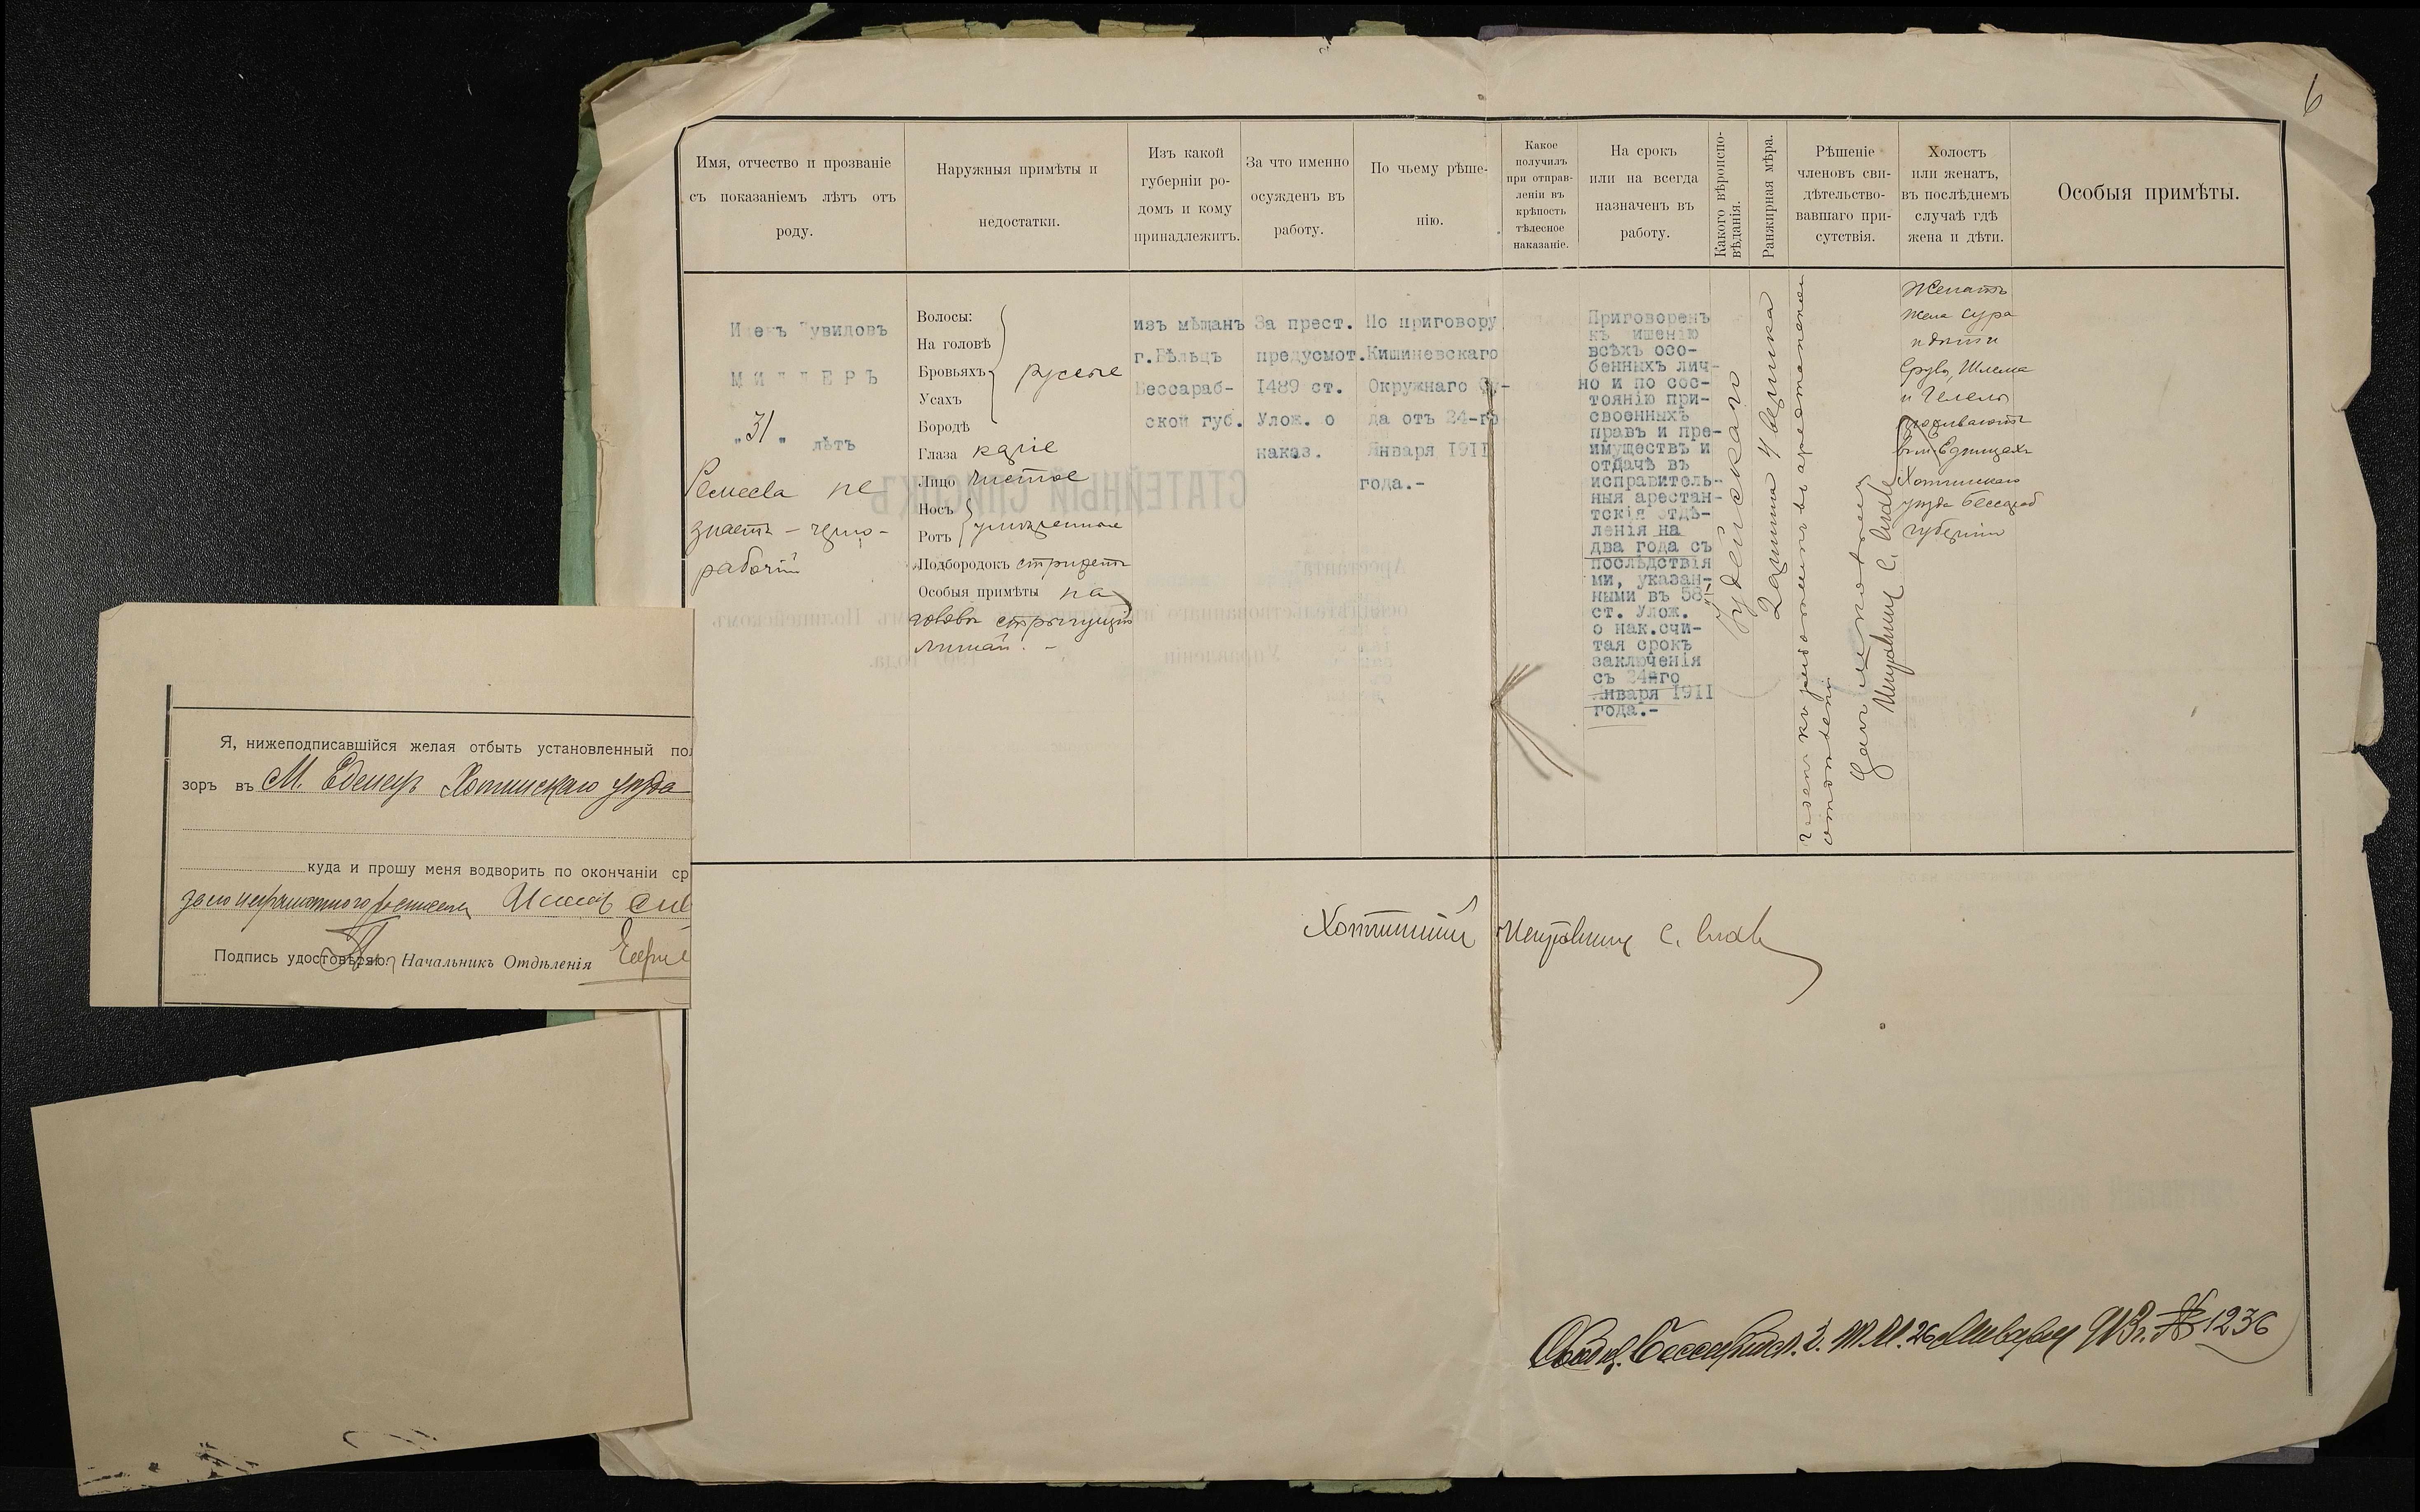 6
Имя, отчество и прозваніе
съ показаніемъ лѣтъ отъ
роду.
Наружныя примѣты и
недостатки.
Изъ какой
губерніи ро-
домъ и кому
принадлежитъ.
За что именно
осужденъ въ
работу.
По чьему рѣше-
нію.
Какое
получилъ
при отправ-
леніи въ
крѣпость
тѣлесное
наказаніе.
На срокъ
или на всегда
назначенъ въ
работу.
Какого вѣроиспо-
вѣданія.
Ранжирная мѣра.
Рѣшеніе
членовъ сви-
дѣтельство-
вавшаго при-
сутствія.
Холостъ
или женатъ,
въ послѣднемъ
случаѣ гдѣ
жена и дѣти.
Особыя примѣты.
МИЛЛЕРЪ
„31„ лѣтъ
Ремесла не
знаетъ - черно-
рабочій
Волосы:
На головѣ
Бровяхъ русые
Усахъ
Бородѣ
Глаза каріе
Лицо чистое
Носъ
Ротъ умѣренные
Подбородокъ стрижетъ
Особыя примѣты на
головѣ стригущій
лишай. -
изъ мѣщанъ
г.Бѣльцъ
Бессараб-
ской губ.
За прест.
предусмот.
1489 ст.
Улож. о
наказ.
По приговору
Кишиневскаго
Окружнаго Су-
да отъ 24-го
Января 1911
года.-
Приговоренъ
къ лишенію
всѣхъ осо-
бенныхъ лич-
но и по сос-
тоянію при-
своенныхъ
правъ и пре-
имуществъ и
отдачѣ въ
исправитель-
ныя арестан-
тскія отдѣ-
ленія на
два года съ
послѣдствія
ми, указан-
ными въ 58-
ст. Улож.
о нак.счи-
тая срокъ
заключенія
съ 24-го
Января 1911
года.-
Іудейскаго
2 аршина 4 вершка
Исправникъ С.
Женатъ
жена Сура
и дѣти
Сруль, Шлема
и
проживаютъ
въ м. Единцахъ
Хотинскаго
уѣзда Бессараб
губерніи
СТАТЕЙНЫЙ СПИСОКЪ
Я, нижеподписавшійся желая отбыть установленный
зоръ въ М. Единец Хотинскаго уѣзда
куда и прошу меня водворить по окончаніи ср
Подпись удостовѣряю: Начальникъ Отдѣленія
Хотинскій Исправникъ С.
26 Января 913 г. № 1236